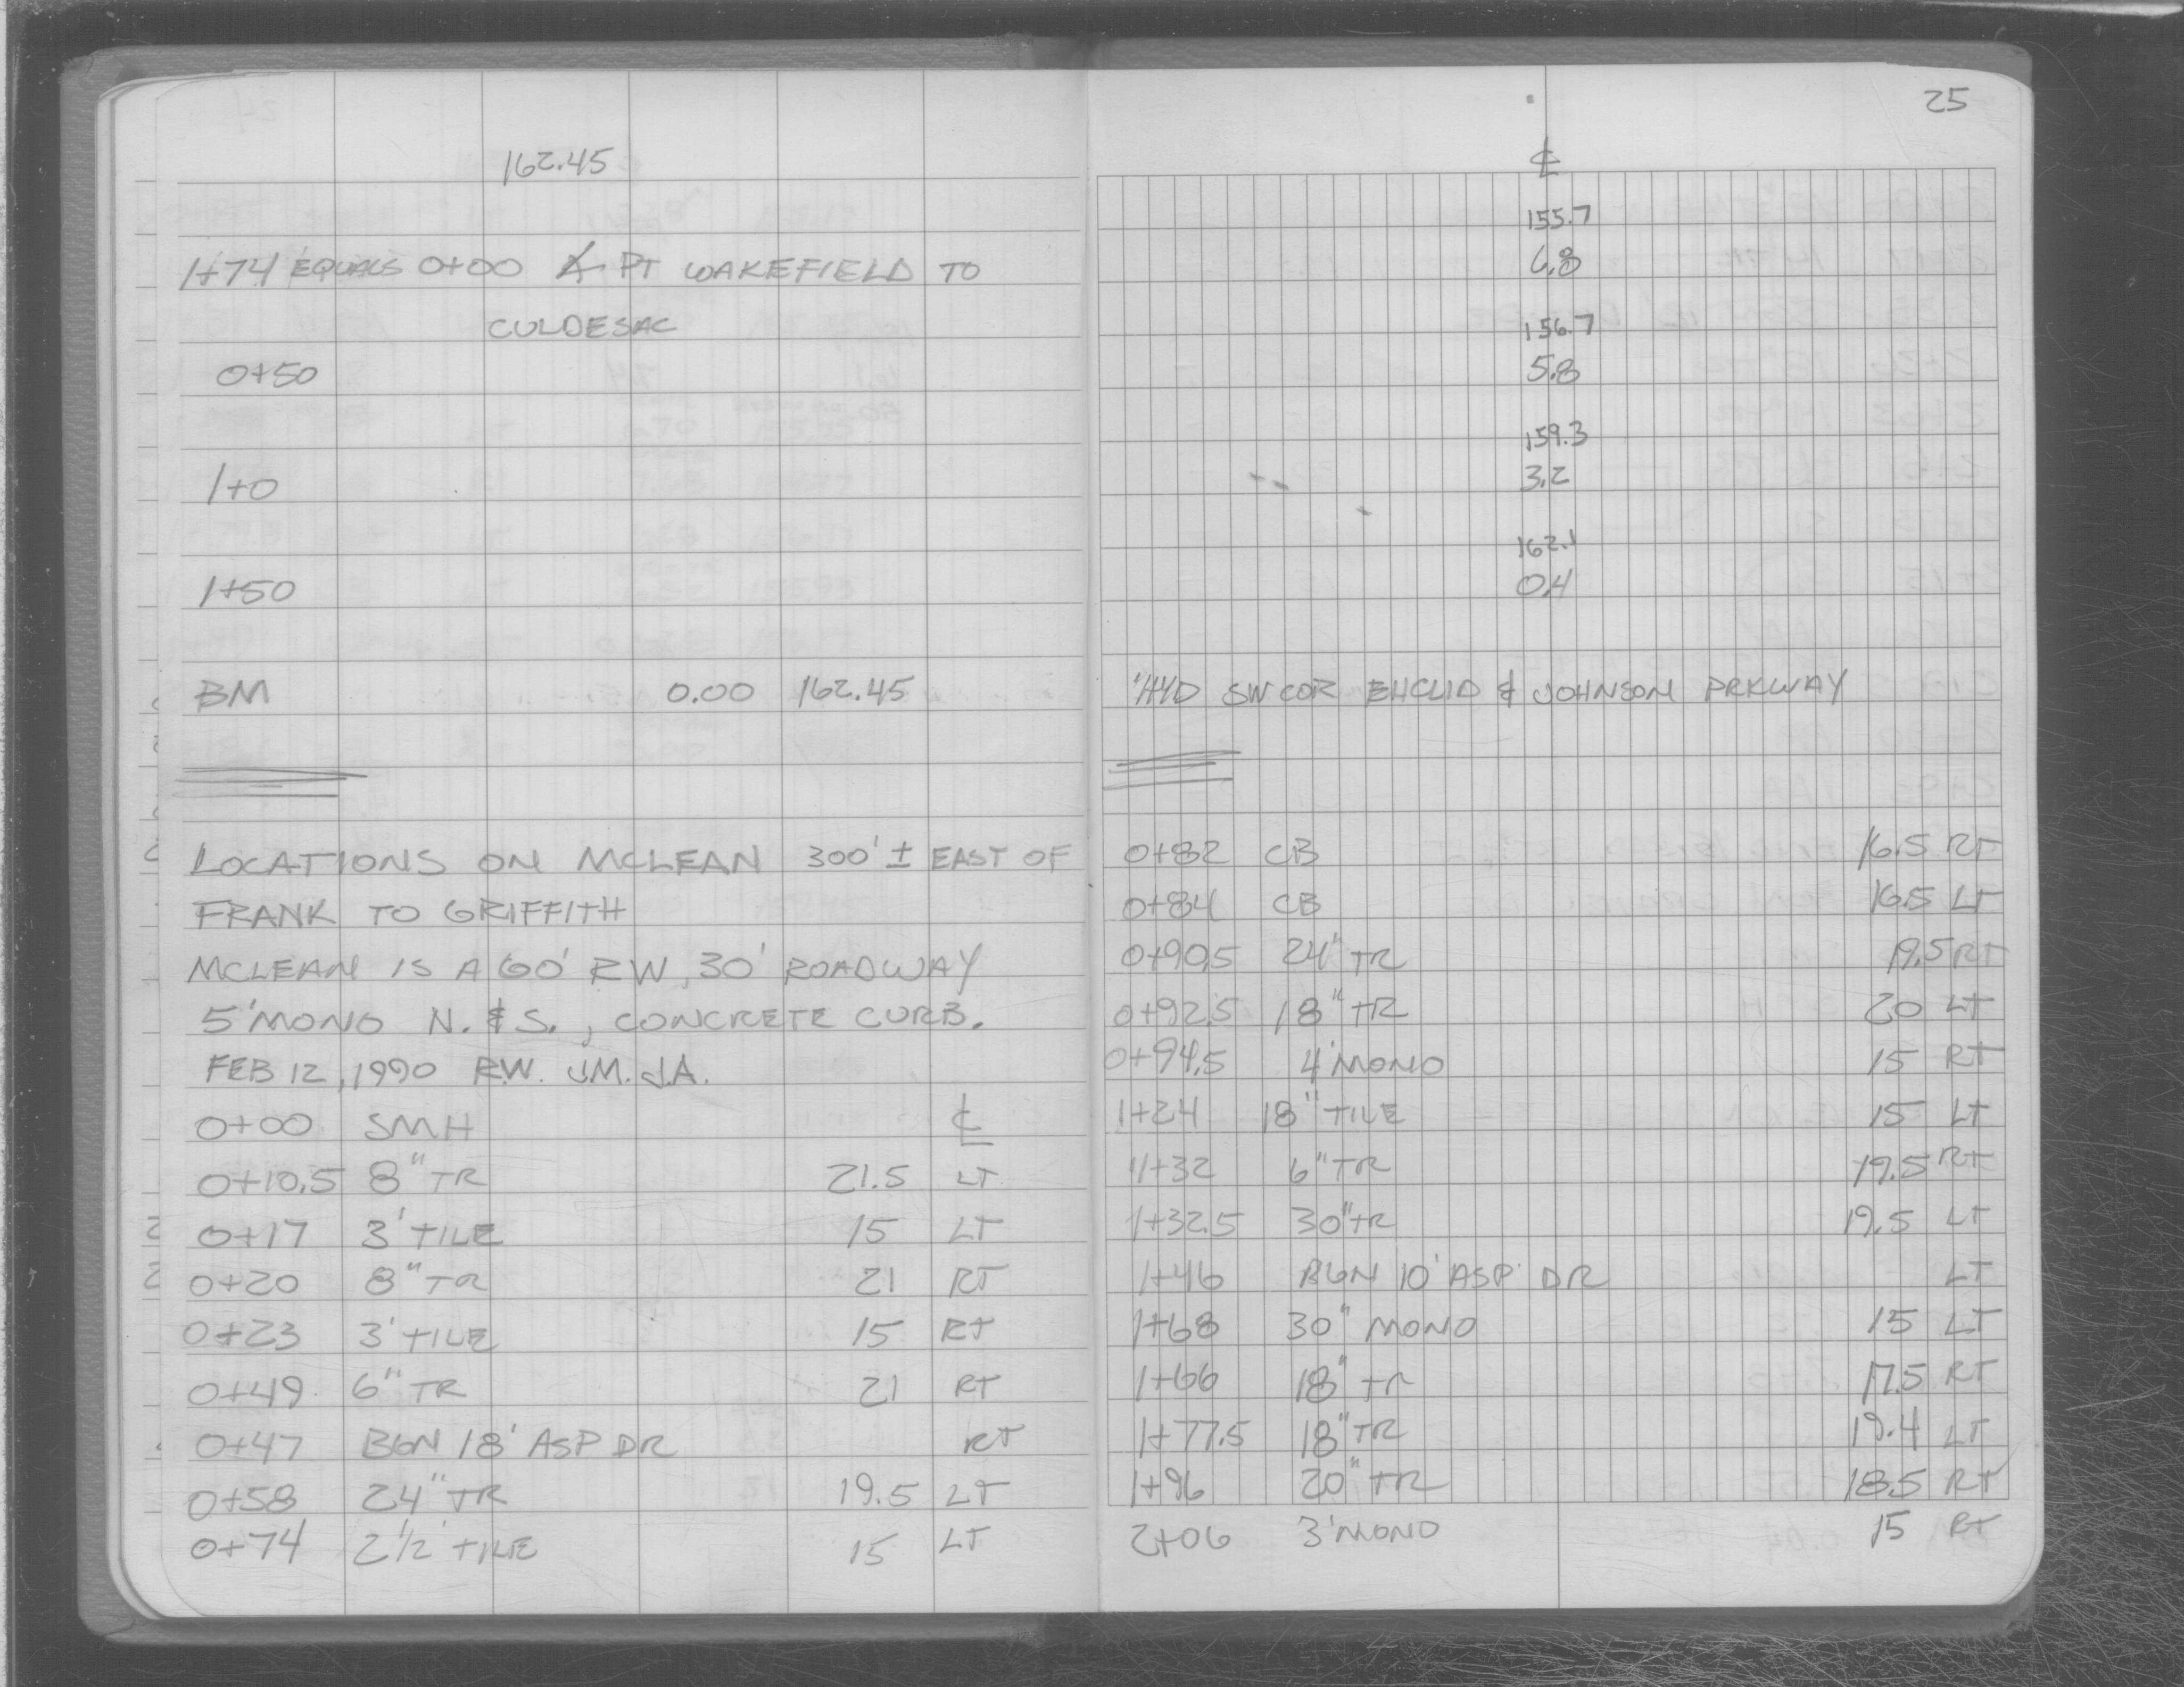 162.45
1+74 EQUALS 0+00 ∠ PT WAKEFIELD TO
CULDESAC
0+50
1+0
1+50
BM 0.00 162.45
LOCATIONS ON MCLEAN 300' ± EAST OF
FRANK TO GRIFFITH
MCLEAN IS A 60' RW, 30' ROADWAY
5' MONO N. & S., CONCRETE CURB.
FEB 12, 1990 R.W. J.M. J.A.
0+00 SMH ℄
0+10.5 8" TR 21.5 LT
0+17 3' TILE 15 LT
0+20 8" TR 21 RT
0+23 3' TILE 15 RT
0+49 6" TR 21 RT
0+47 BGN 18' ASP DR RT
0+58 24" TR 19.5 LT
0+74 2 1/2' TILE 15 LT
25
℄
155.7
6.8
156.7
5.8
159.3
3.2
162.1
0.4
HYD SW COR EUCLID & JOHNSON PRKWAY
0+82 CB 16.5 RT
0+84 CB 16.5 LT
0+90.5 24" TR 19.5 RT
0+92.5 18" TR 20 LT
0+94.5 4' MONO 15 RT
1+24 18" TILE 15 LT
1+32 6" TR 19.5 RT
1+32.5 30" TR 19.5 LT
1+46 BGN 10' ASP DR LT
1+68 30" MONO 15 LT
1+66 18" TR 17.5 RT
1+77.5 18" TR 19.4 LT
1+96 20" TR 18.5 RT
2+06 3' MONO 15 RT